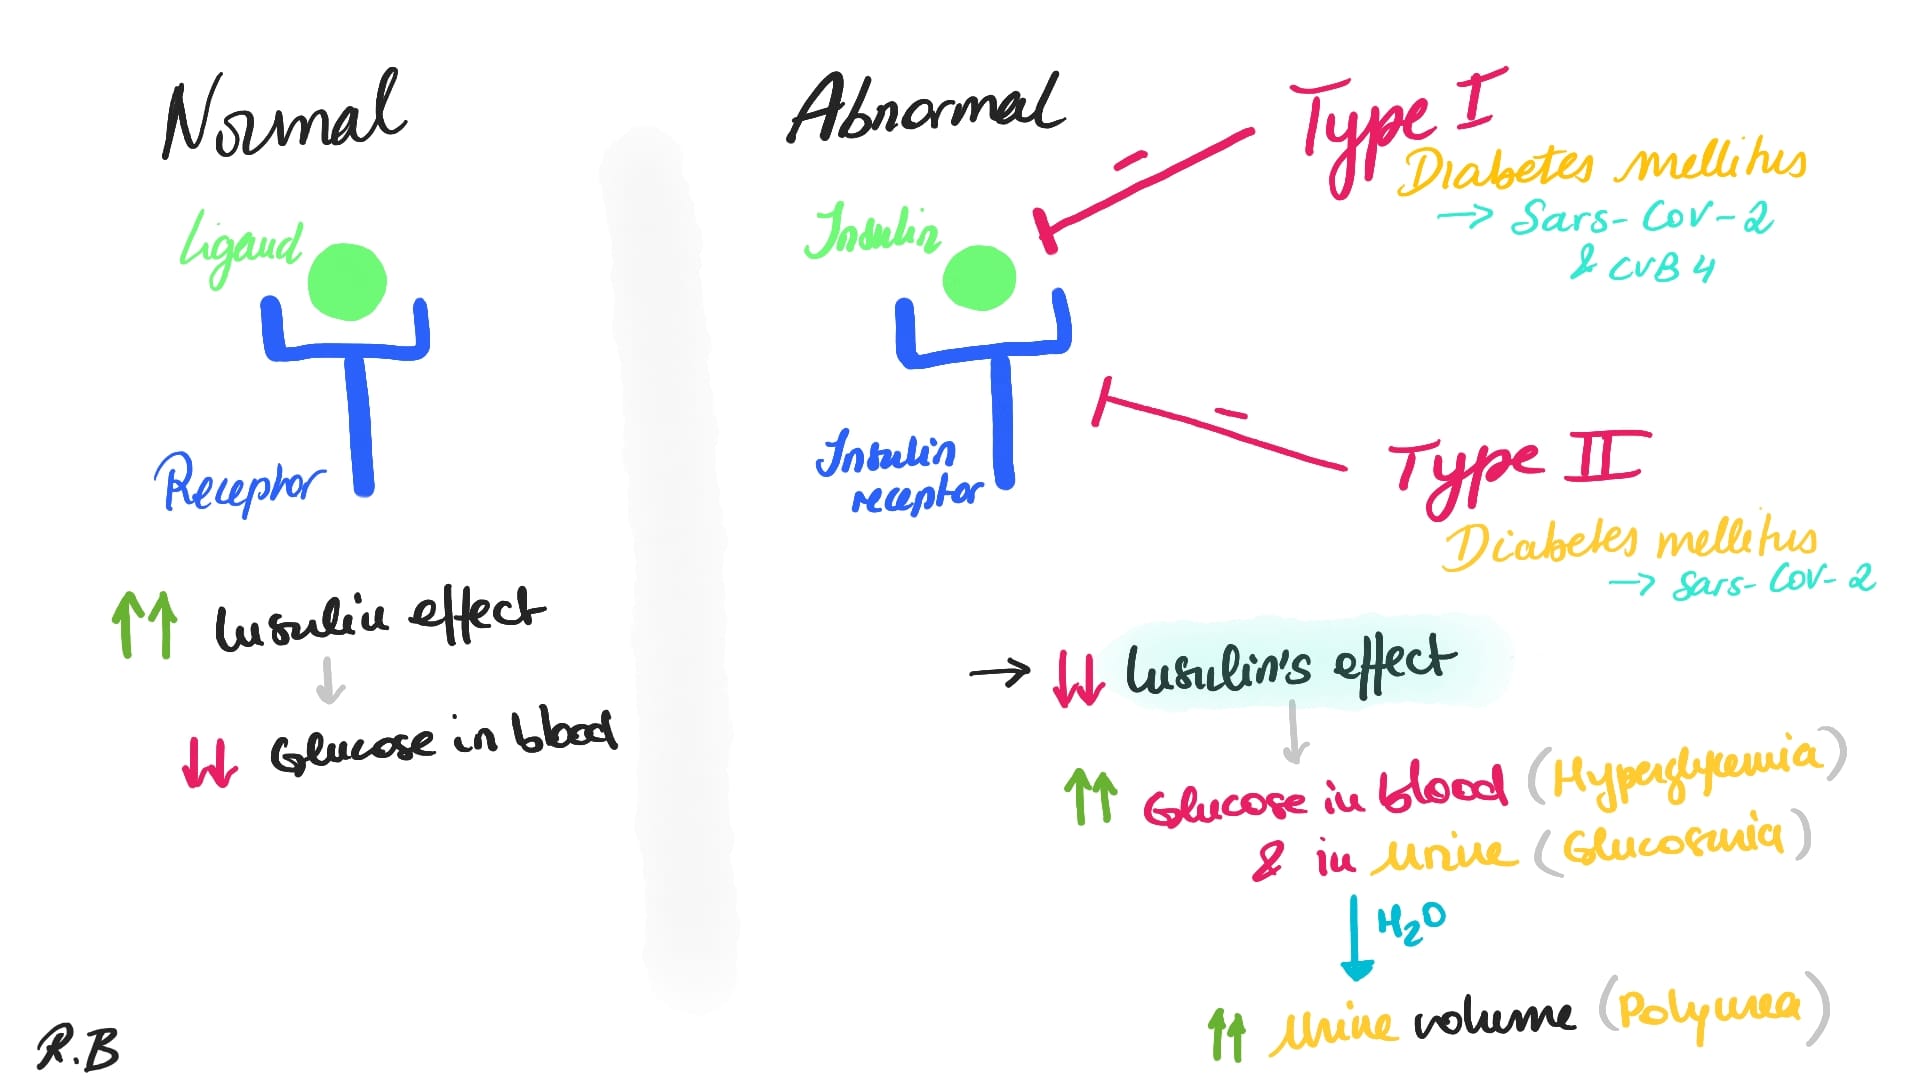 Normal
Ligand
Receptor
↑↑ Insulin effect
↓
↓↓ Glucose in blood
R.B
Abnormal
Insulin
Insulin
receptor
Type I
Diabetes mellitus
→ Sars-Cov-2
& CVB4
Type II
Diabetes mellitus
→ Sars-Cov-2
→ ↓↓ Insulin's effect
↓
↑↑ Glucose in blood (Hyperglycemia)
& in urine (Glucosuria)
↓ H2O
↑↑ Urine volume (Polyurea)